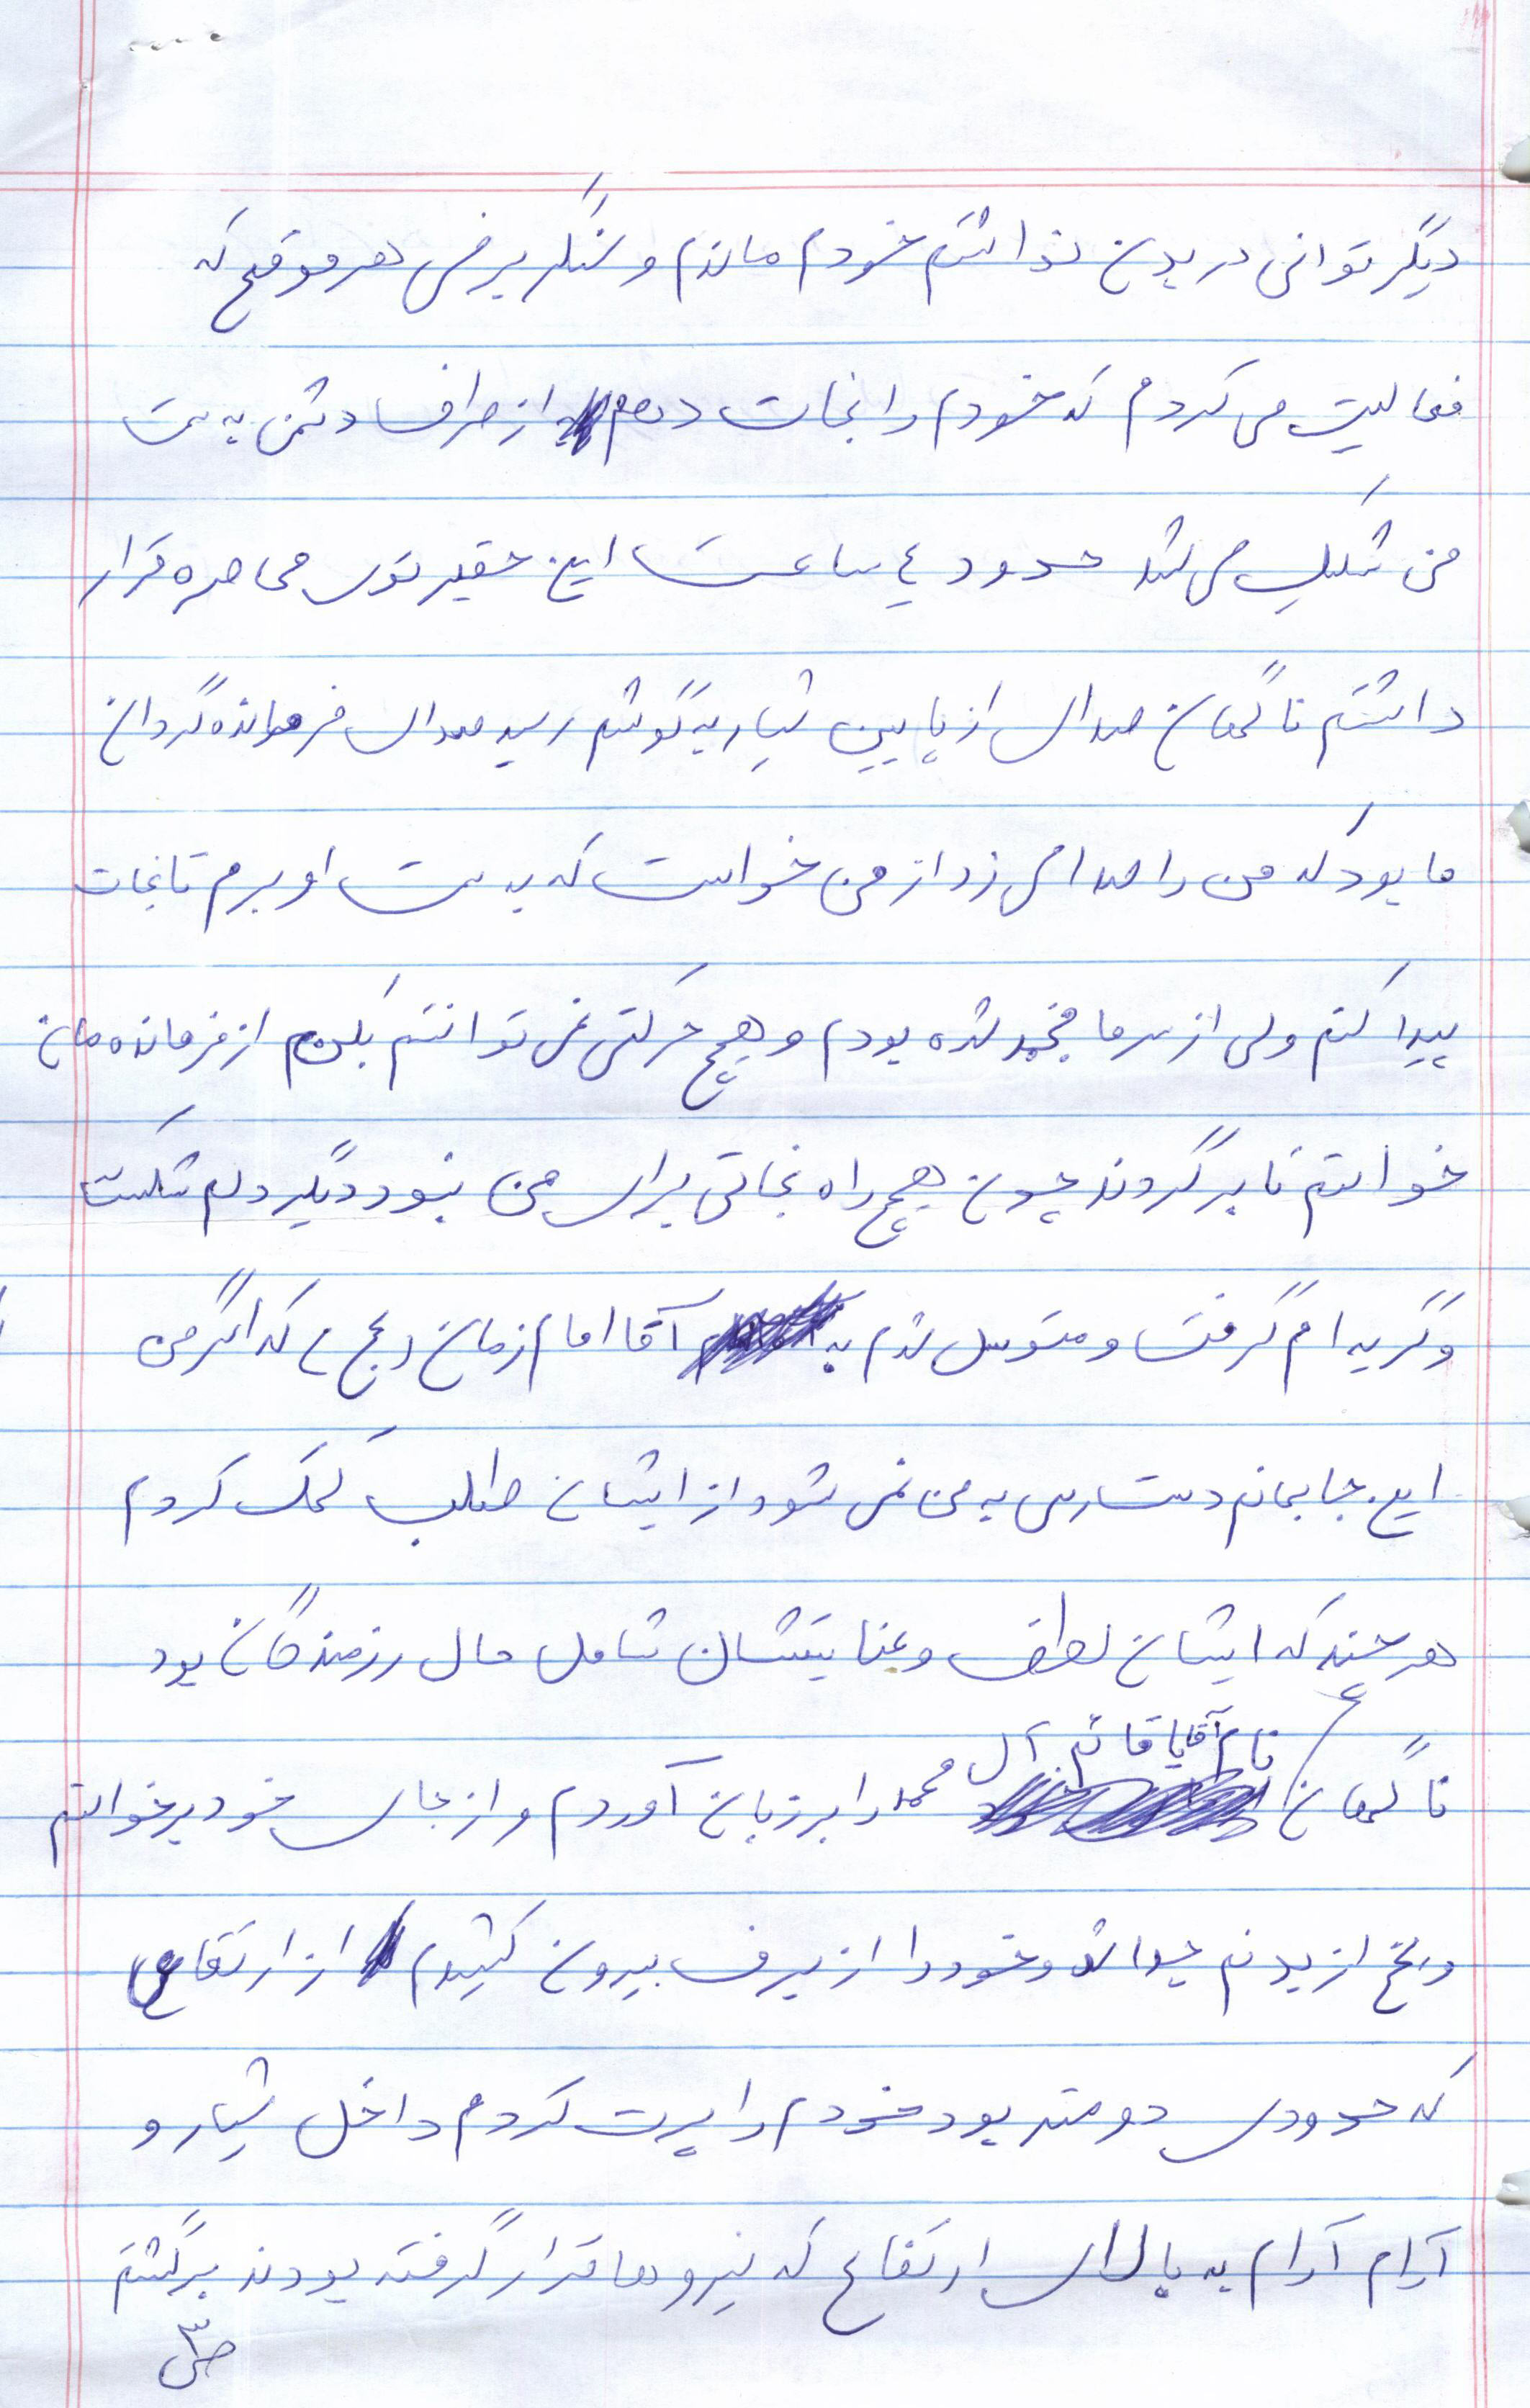 دیگر توانی در بدن نداشتم خودم ماندم و سنگر برفی هر موقع که
فعالیت می کردم که خودم را نجات دهم از طرف دشمن به سمت
من شلیک می شد حدود ٤ ساعت این حقیر توی محاصره قرار
داشتم ناگهان صدای از پایین شیار به گوشم رسید صدای فرمانده گردان
ما بود که من را صدا می زد از من خواست که به سمت او برم تا نجات
پیدا کنم ولی از سرما منجمد شده بودم و هیچ حرکتی نمی توانستم بکنم از فرمانده مان
خواستم تا برگردند چون هیچ راه نجاتی برای من نبود دیگر دلم شکست
و گریه ام گرفت و متوسل شدم به آقا امام زمان (عج) که اگر من
این جا بمانم دست رسی به من نمی شود از ایشان طلب کمک کردم
هر چند که ایشان لطف و عنایتشان شامل حال رزمندگان بود
ناگهان نام آقایا قائم آل محمد را بر زبان آوردم و از جای خود برخواستم
و یخ از بدنم جدا شد و خود را از برف بیرون کشیدم از ارتفاع
که حدودی دو متر بود خودم را پرت کردم داخل شیار و
آرام آرام به بالای ارتفاع که نیروها قرار گرفته بودند برگشتم
ص۳